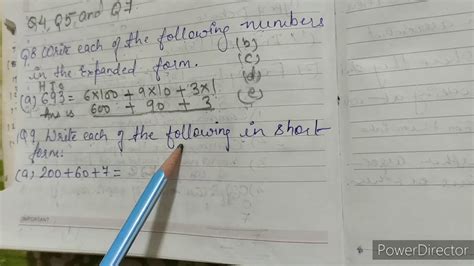 Q4, Q5 and Q7
Q8 Write each of the following numbers
in the Expanded form. (b)
H T O (c)
(a) 693 = 6×100 + 9×10 + 3×1 (d)
Ans is 600 + 90 + 3 (e)
Q9 Write each of the following in short
form:
(a) 200+60+7=
IMPORTANT
PowerDirector